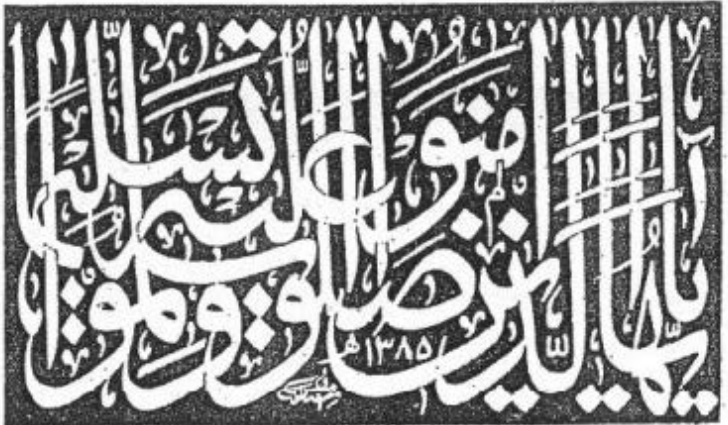 يا أيها الذين آمنوا صلوا عليه وسلموا تسليما
١٣٨٥هـ